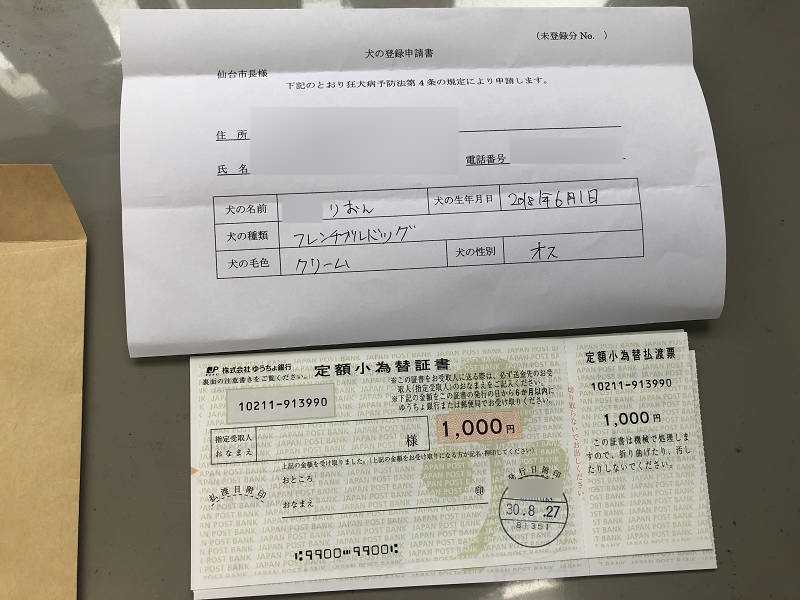 (未登録分 No. )
犬の登録申請書
仙台市長様
下記のとおり狂犬病予防法第4条の規定により申請します。
住 所
氏 名
電話番号
犬の名前 りおん 犬の生年月日 2018年6月1日
犬の種類 フレンチブルドッグ
犬の毛色 クリーム 犬の性別 オス
株式会社ゆうちょ銀行 定額小為替証書
裏面の注意書きをご覧ください。
※この証書をお受取人に送る際は、必ず送金先のお受
取人(指定受取人)のおなまえをご記入ください。
※下記の金額をこの証書の発行の日から6か月以内に
ゆうちょ銀行または郵便局でお受け取りください。
10211-913990
1,000円
指定受取人
おなまえ
様
上記の金額を受け取りました。(上記の金額をお受け取りになる方が記名・押印してください。)
おところ
おなまえ
印
払渡日附印
発行日附印
30.8.27
81351
9900 9900
切り取らないでお出しください。
定額小為替払渡票
10211-913990
1,000円
この証書は機械で処理しま
すので、折り曲げたり、汚し
たりしないでください。
JAPAN POST BANK